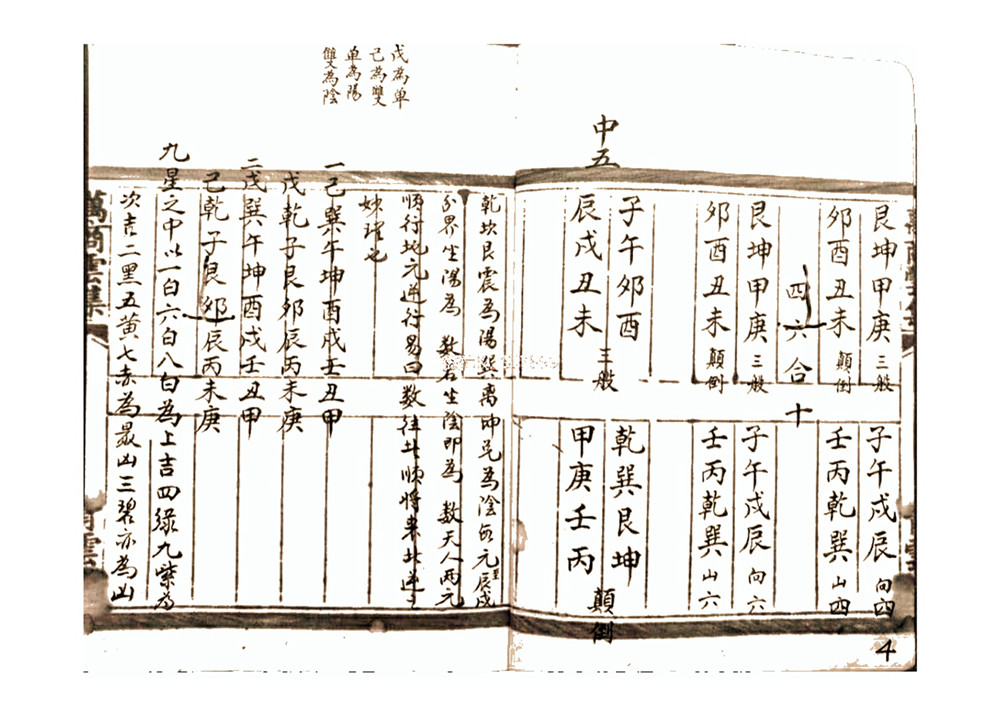 艮坤甲庚三般
子午戌辰向四
夘酉丑未顛倒
壬丙乾巽山四
四六合十
艮坤甲庚三般
子午戌辰向六
夘酉丑未顛倒
壬丙乾巽山六
中五
子午夘酉
辰戌丑未
三般
乾巽艮坤
甲庚壬丙
顛倒
4
戊為单
己為雙
单為陽
雙為陰
乾坎艮震為陽巽离坤兌為陰每元辰戌
分界生陽為 数右生陰即為 数天人兩元
順行地元逆行易曰数往此順将来此逆
姊理也
一己巽午坤酉戌壬丑甲
戊乾子艮夘辰丙未庚
二戊巽午坤酉戌壬丑甲
己乾子艮夘辰丙未庚
九星之中以一白六白八白為上吉四綠九紫為
次吉二黑五黄七赤為最凶三碧亦為凶
萬商雲集